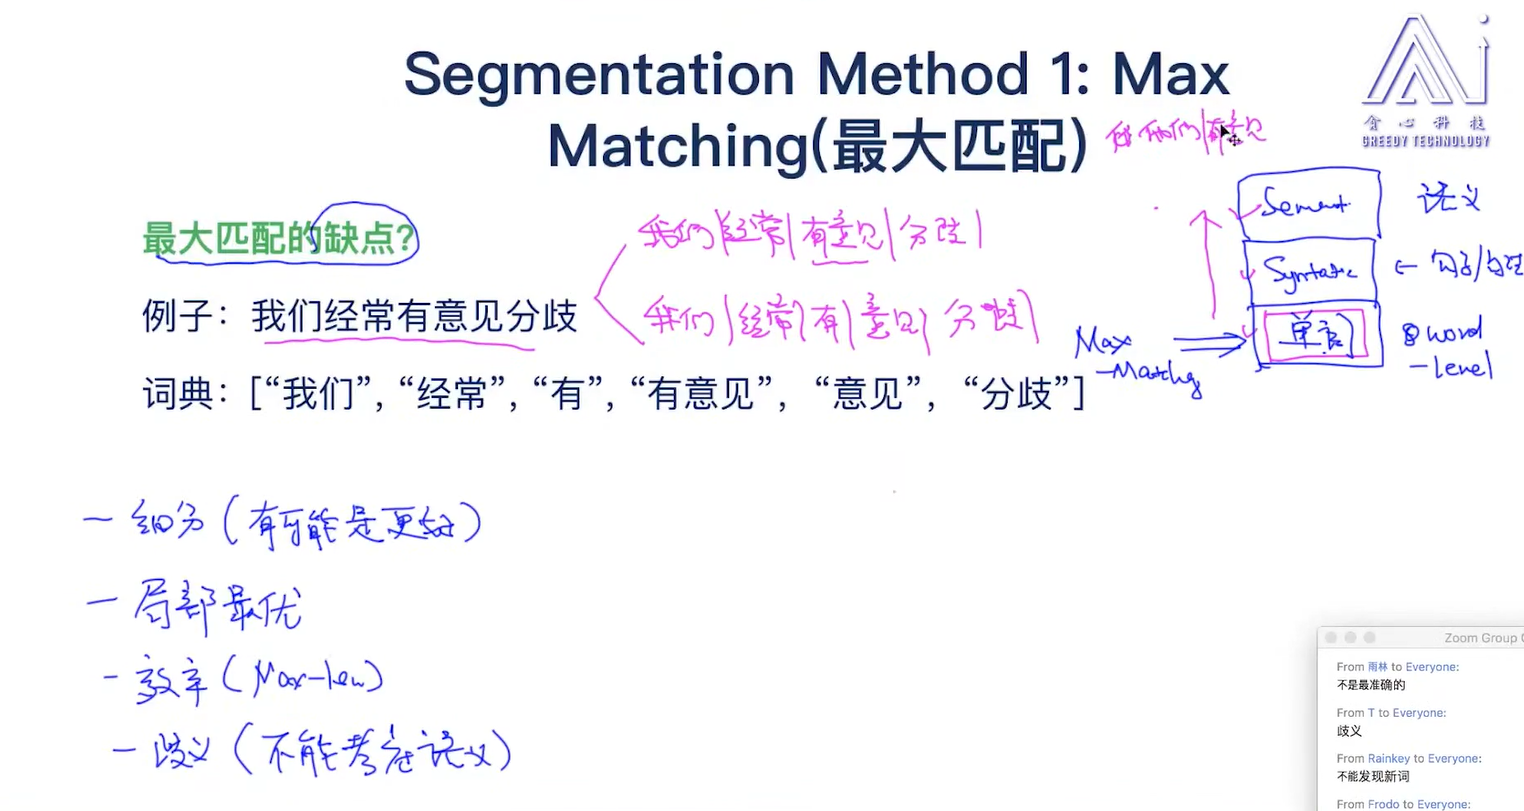 Segmentation Method 1: Max
Matching(最大匹配)
我 他们|有意见
贪心科技
GREEDY TECHNOLOGY
最大匹配的缺点?
我们|经常|有意见|分歧|
例子：我们经常有意见分歧
我们|经常|有|意见|分歧|
词典：[“我们”, “经常”, “有”, “有意见”, “意见”, “分歧”]
语义
← 句子/
单词
word
-level
Max
-Matchg
- 细分（有可能是更好）
- 局部最优
- 效率（Max-len）
- 歧义（不能考虑语义）
Zoom Group
From 雨林 to Everyone:
不是最准确的
From T to Everyone:
歧义
From Rainkey to Everyone:
不能发现新词
From Frodo to Everyone: